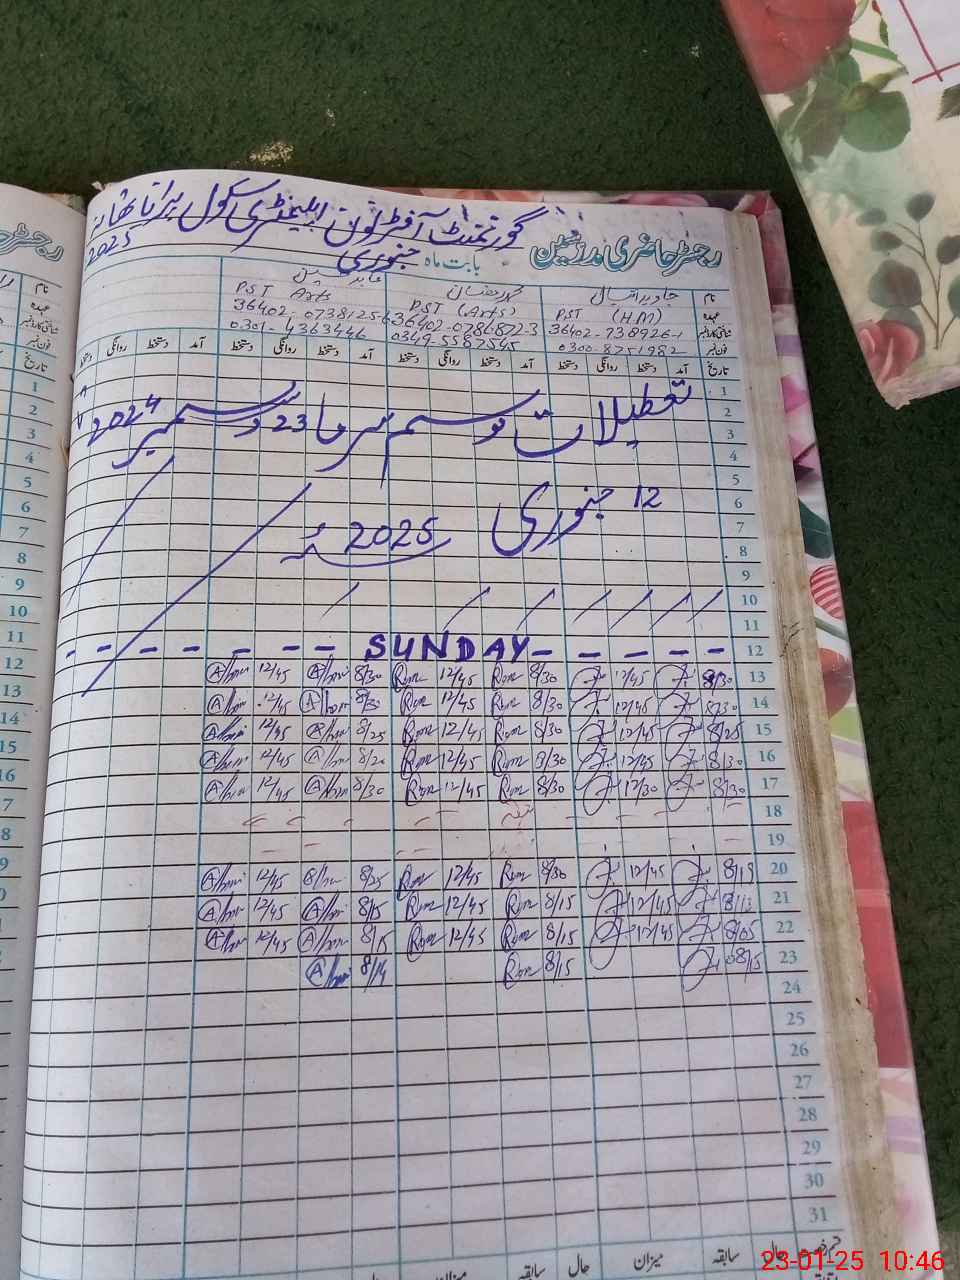 گورنمنٹ آفٹر نون ایلیمنٹری سکول پرانا تھانہ
رجسٹر حاضری مدرسین بابت ماہ جنوری 2025
نام جاوید اقبال محمد رمضان عابد
عہدہ PST (H.M) PST (Arts) PST Arts
شناختی کارڈ نمبر 36402-738926-1 36402-0786872-3 36402-0738125-6
فون نمبر 0300-8751982 0349-5587545 0301-4363446
تاریخ آمد دستخط روانگی دستخط آمد دستخط روانگی دستخط آمد دستخط روانگی دستخط
1
2 تعطیلات موسم سرما 23 دسمبر 2024
3
4
5
6 12 جنوری 2025ء
7
8
9
10
11
12 SUNDAY
13 8/30 12/45 8/30 12/45 8/30 12/45
14 8/30 12/45 8/30 12/45 8/30 12/45
15 8/25 12/45 8/30 12/45 8/25 12/45
16 8/30 12/45 8/30 12/45 8/20 12/45
17 8/30 12/30 8/30 12/45 8/30 12/45
18
19
20 8/19 12/45 8/30 12/45 8/25 12/45
21 8/13 12/45 8/15 12/45 8/15 12/45
22 8/05 12/45 8/15 12/45 8/15 12/45
23 8/15 8/15 8/14
24
25
26
27
28
29
30
31
حال سابقہ میزان حال سابقہ میزان حال
23-01-25 10:46